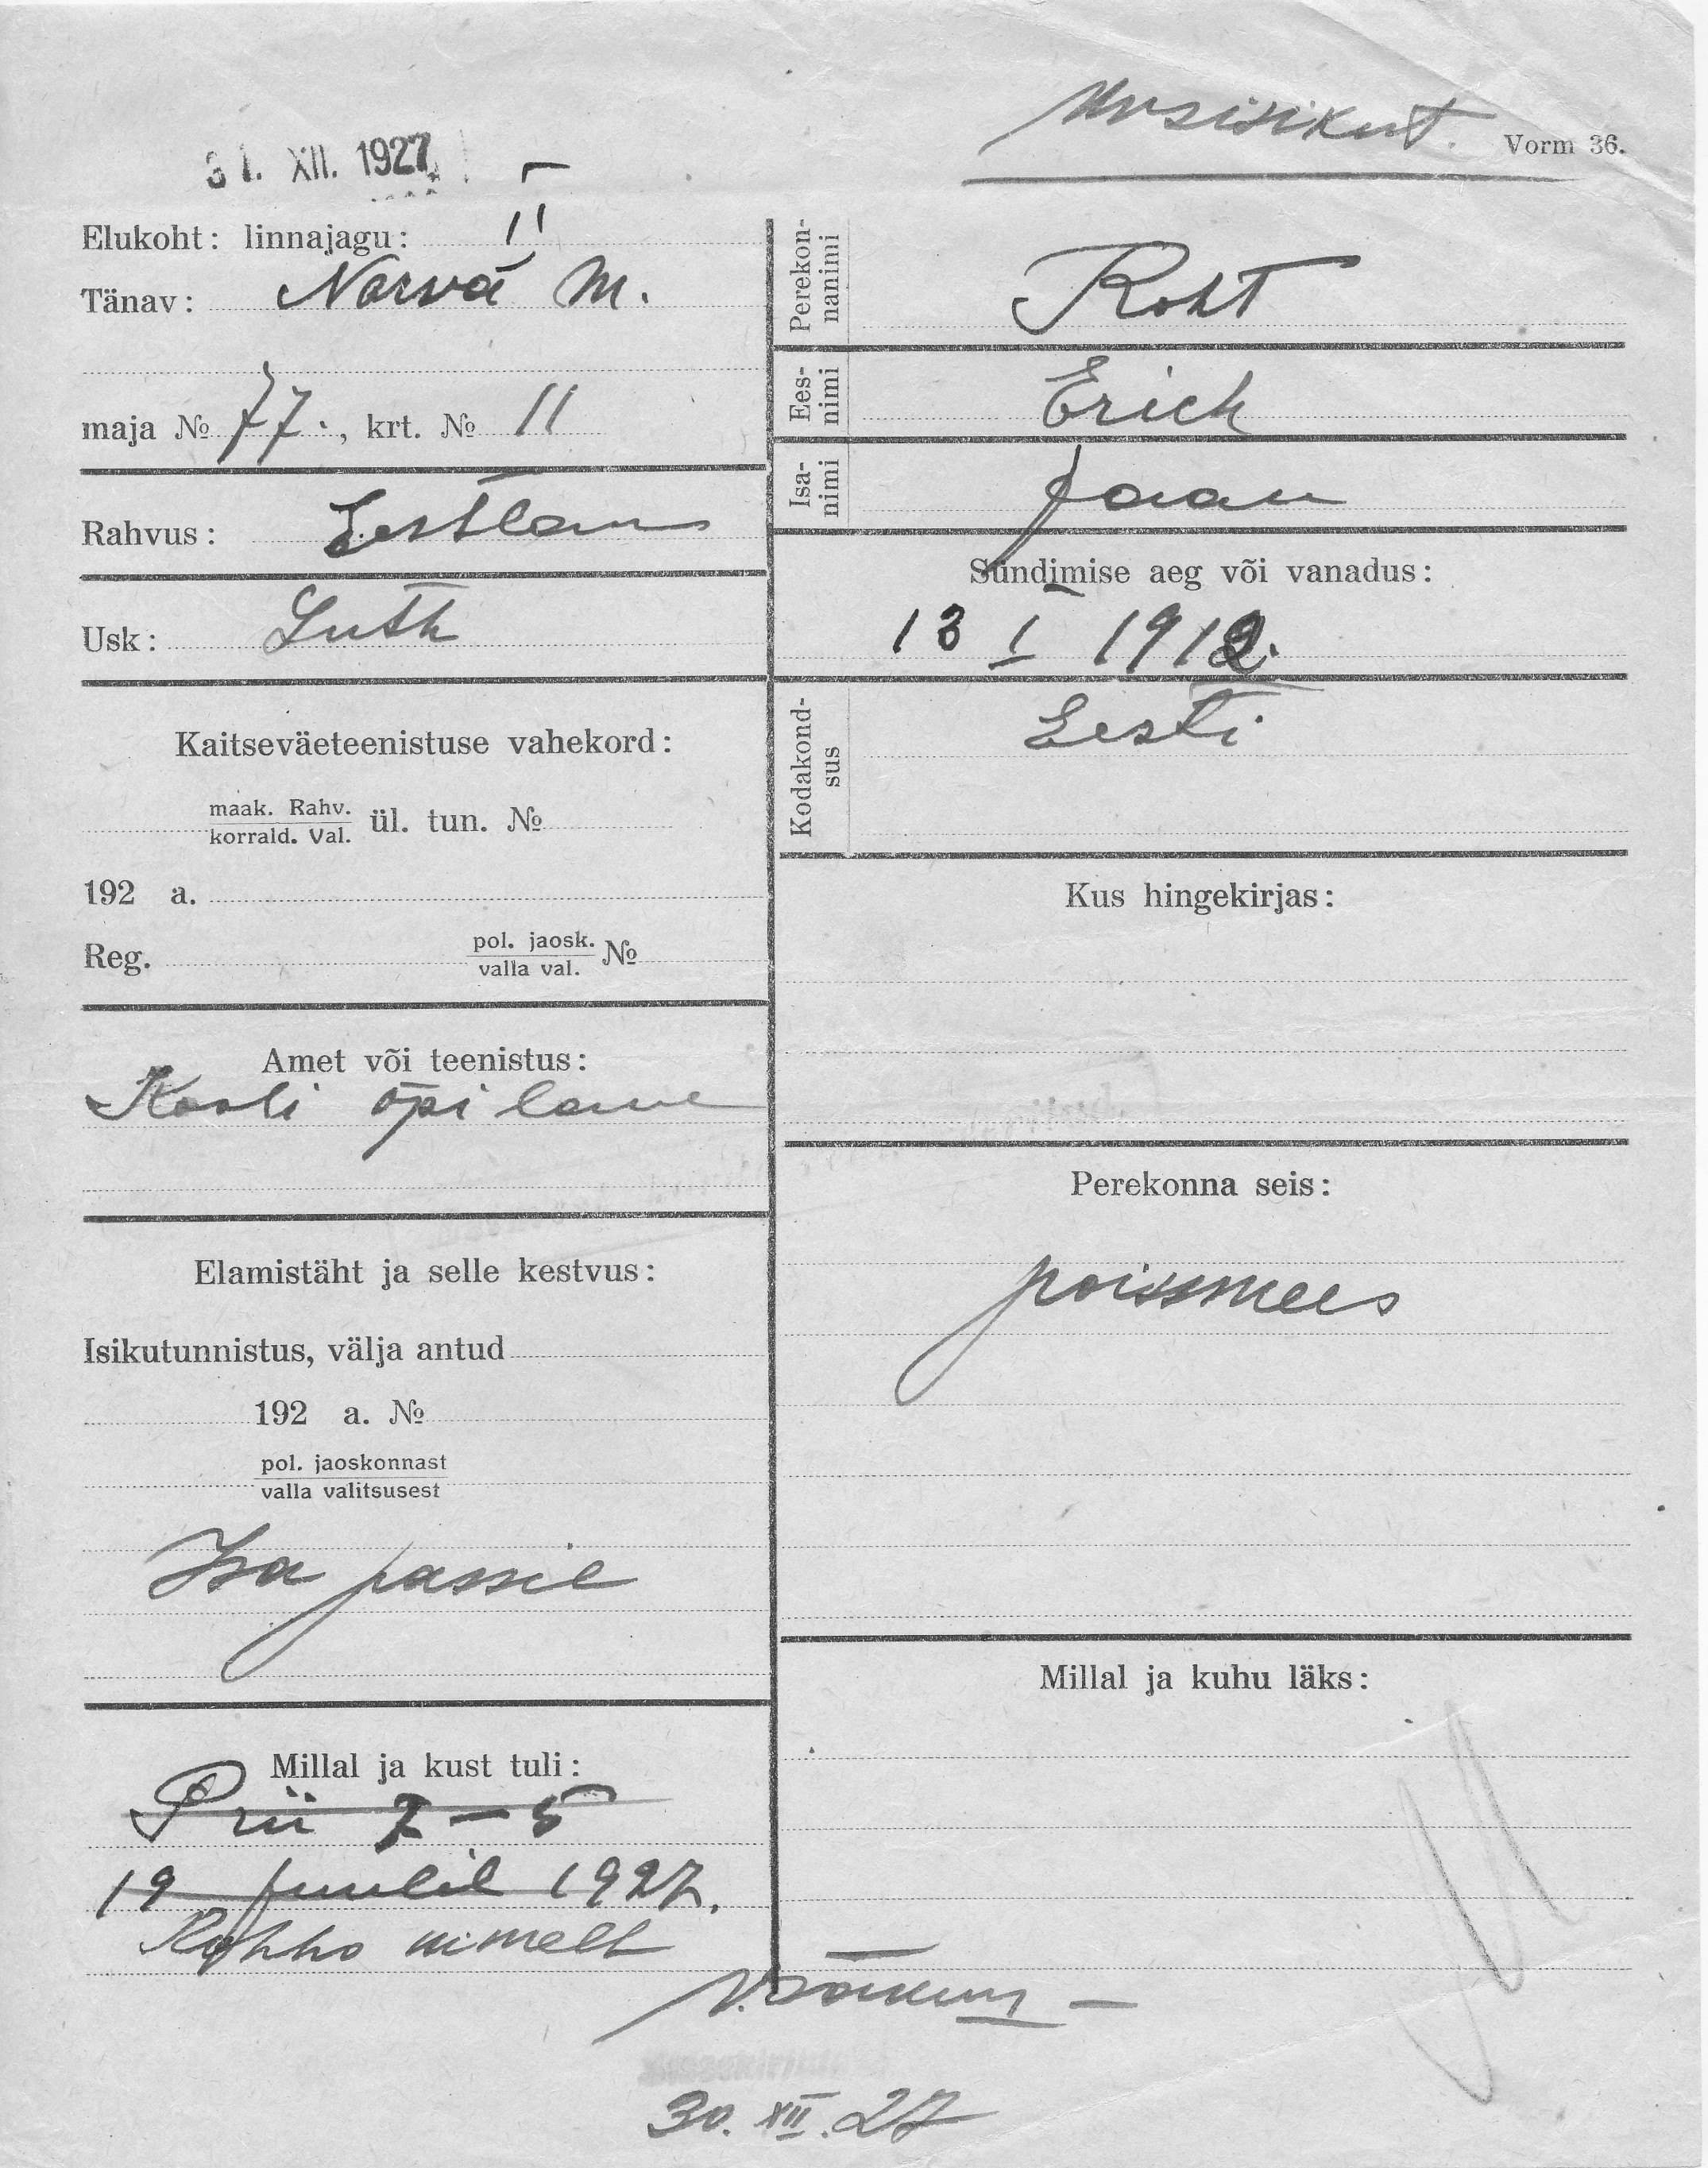 31. XII. 1927.
Vorm 36.
Elukoht: linnajagu: II
Tänav: Narva M.
maja № 77., krt. № 11
Rahvus: Eestlane
Usk: Luth
Kaitseväeteenistuse vahekord:
maak. Rahv.
korrald. Val. ül. tun. №
192 a.
Reg. pol. jaosk.
valla val. №
Amet või teenistus:
Kooli õpilane
Elamistäht ja selle kestvus:
Isikutunnistus, välja antud
192 a. №
pol. jaoskonnast
valla valitsusest
Isa passil
Millal ja kust tuli:
Prii 7-5
19 juulil 1927.
nimelt
Perekon-
nanimi Roht
Ees-
nimi Erich
Isa-
nimi Jaan
Sündimise aeg või vanadus:
13 I 1912.
Kodakond-
sus Eesti
Kus hingekirjas:
Perekonna seis:
poissmees
Millal ja kuhu läks:
30. XII. 27